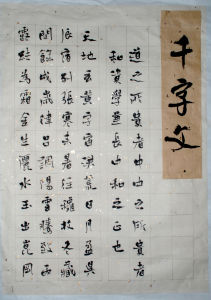 千字文
道之所貴者中中之所貴者
和資學兼長中和之正也
天地玄黃宇宙洪荒日月盈昃
辰宿列張寒来暑往秋收冬藏
閏餘成歲律呂調陽雲騰致雨
露結為霜金生麗水玉出崑岡